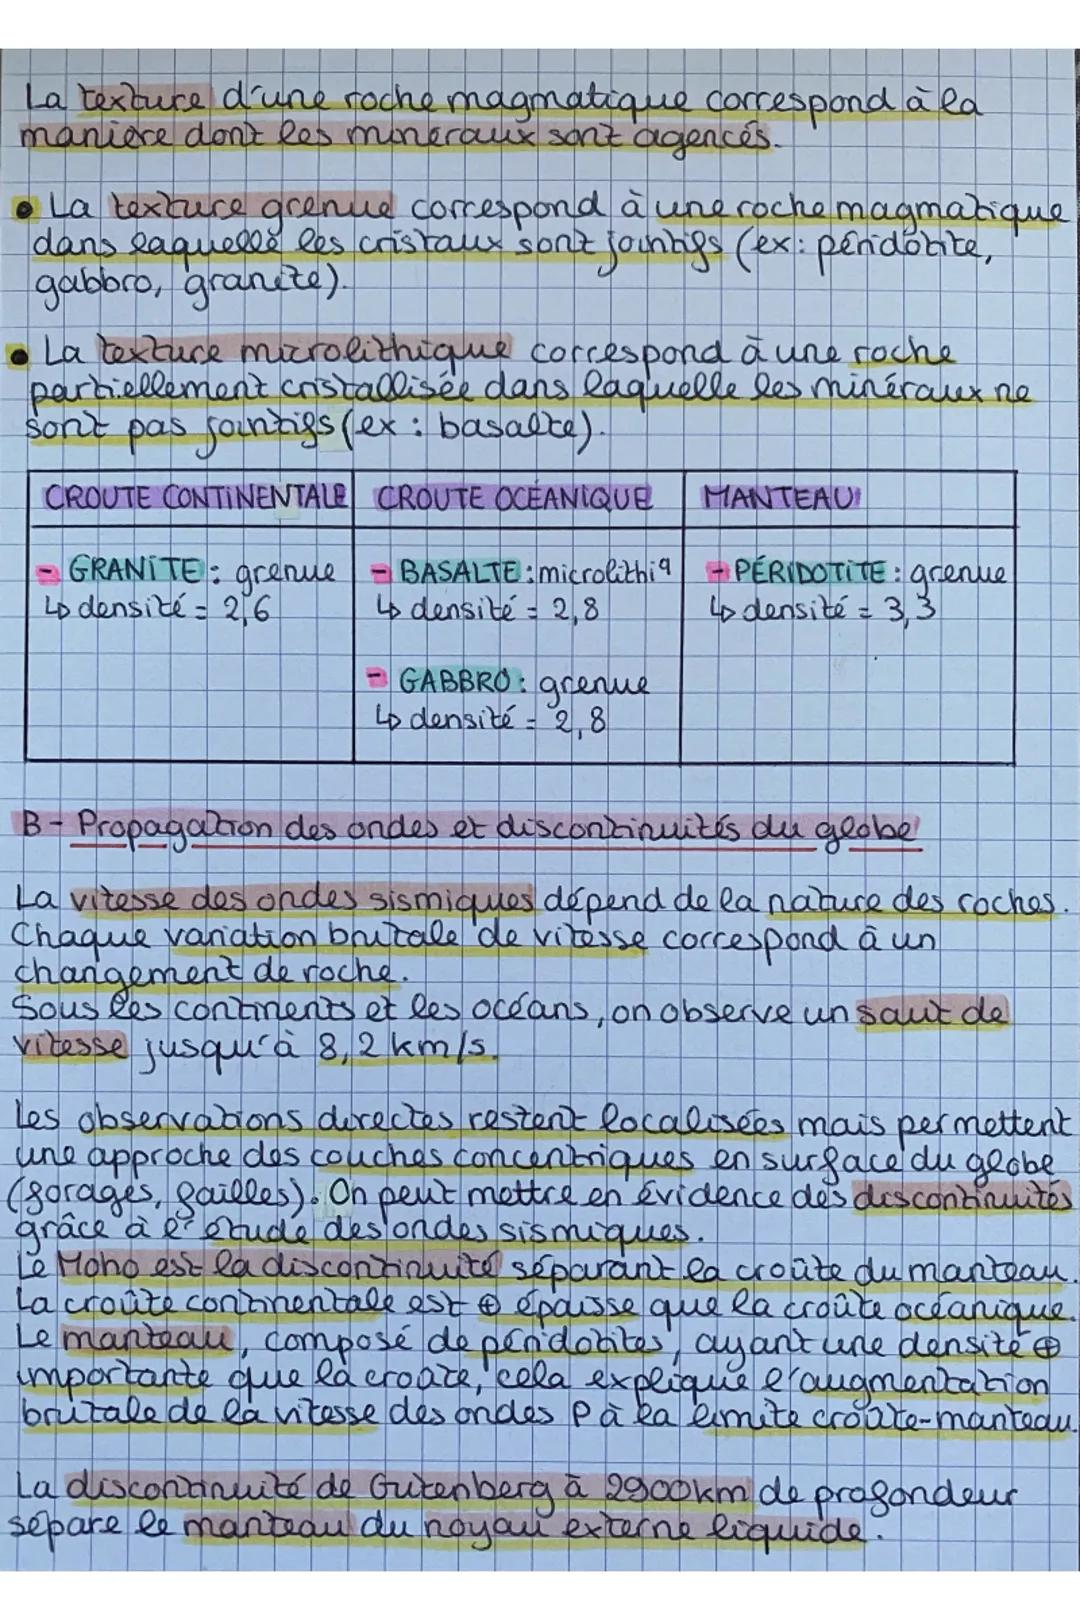 La texture d'une roche magmatique correspond à la
manière dont les minéraux sont agencés.
• La texture grenue correspond à une roche magmatique
dans laquelle les cristaux sont jointifs (ex: péridotite,
gabbro, granite).
• La texture microlithique correspond à une roche
partiellement cristallisée dans laquelle les minéraux ne
sont pas jointifs (ex : basalte).
CROUTE CONTINENTALE
- GRANITE : grenue
↳ densité = 2,6
CROUTE OCÉANIQUE
- BASALTE : microlithiq
↳ densité = 2,8
- GABBRO : grenue
↳ densité = 2,8
MANTEAU
- PÉRIDOTITE : grenue
↳ densité = 3,3
B - Propagation des ondes et discontinuités du globe
La vitesse des ondes sismiques dépend de la nature des roches.
Chaque variation brutale de vitesse correspond à un
changement de roche.
Sous les continents et les océans, on observe un saut de
vitesse jusqu'à 8,2 km/s.
Les observations directes restent localisées mais permettent
une approche des couches concentriques en surface du globe
(forages, failles). On peut mettre en évidence des discontinuités
grâce à l'étude des ondes sismiques.
Le Moho est la discontinuité séparant la croûte du manteau.
La croûte continentale est ⊕ épaisse que la croûte océanique.
Le manteau, composé de péridotites, ayant une densité ⊕
importante que la croûte, cela explique l'augmentation
brutale de la vitesse des ondes P à la limite croûte-manteau.
La discontinuité de Gutenberg à 2900km de profondeur
sépare le manteau du noyau externe liquide.